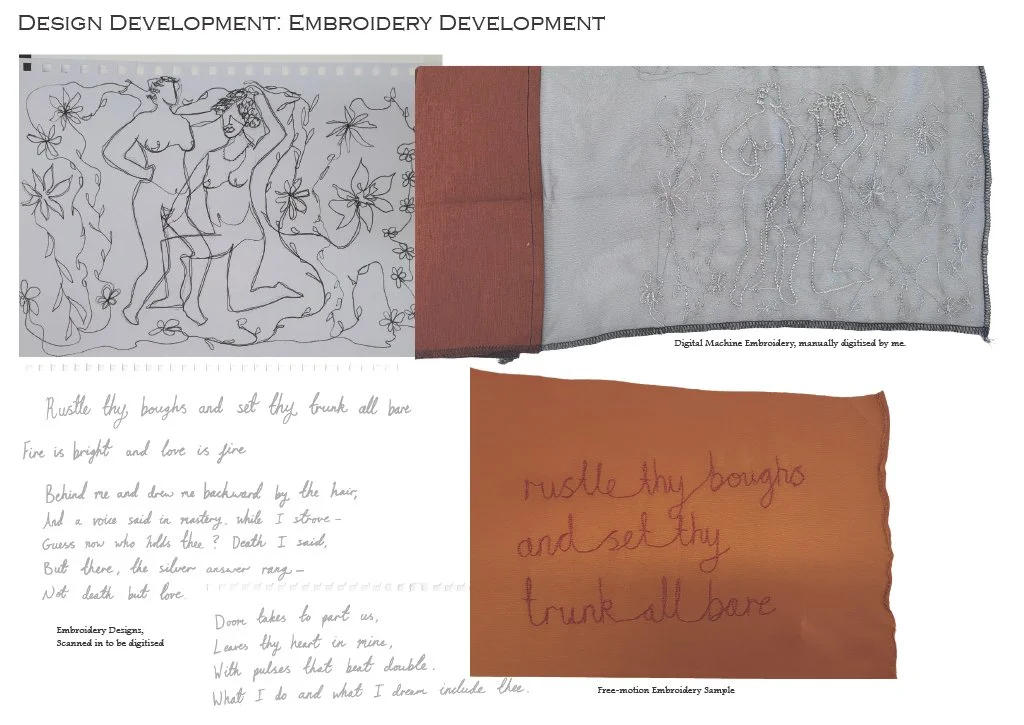 DESIGN DEVELOPMENT: EMBROIDERY DEVELOPMENT
Digital Machine Embroidery, manually digitised by me.
Rustle thy boughs and set thy trunk all bare
Fire is bright and love is fire
Behind me and drew me backward by the hair,
And a voice said in mastery, while I strove –
Guess now who holds thee? Death I said,
But there, the silver answer rang –
Not death but love.
Embroidery Designs,
Scanned in to be digitised
Doom takes to part us,
Leaves thy heart in mine,
With pulses that beat double.
What I do and what I dream include thee.
rustle thy boughs
and set thy
trunk all bare
Free-motion Embroidery Sample